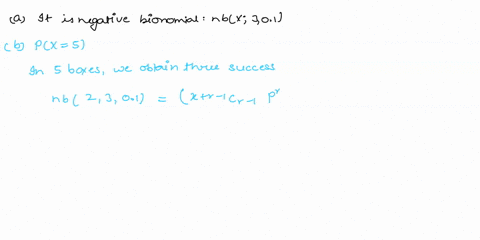 (a) It is negative bionomial: nb(x; 3, 0.1)
(b) P(X = 5)
In 5 boxes, we obtain three success
nb( 2, 3, 0.1) = (x+r-1 C r-1 p^r